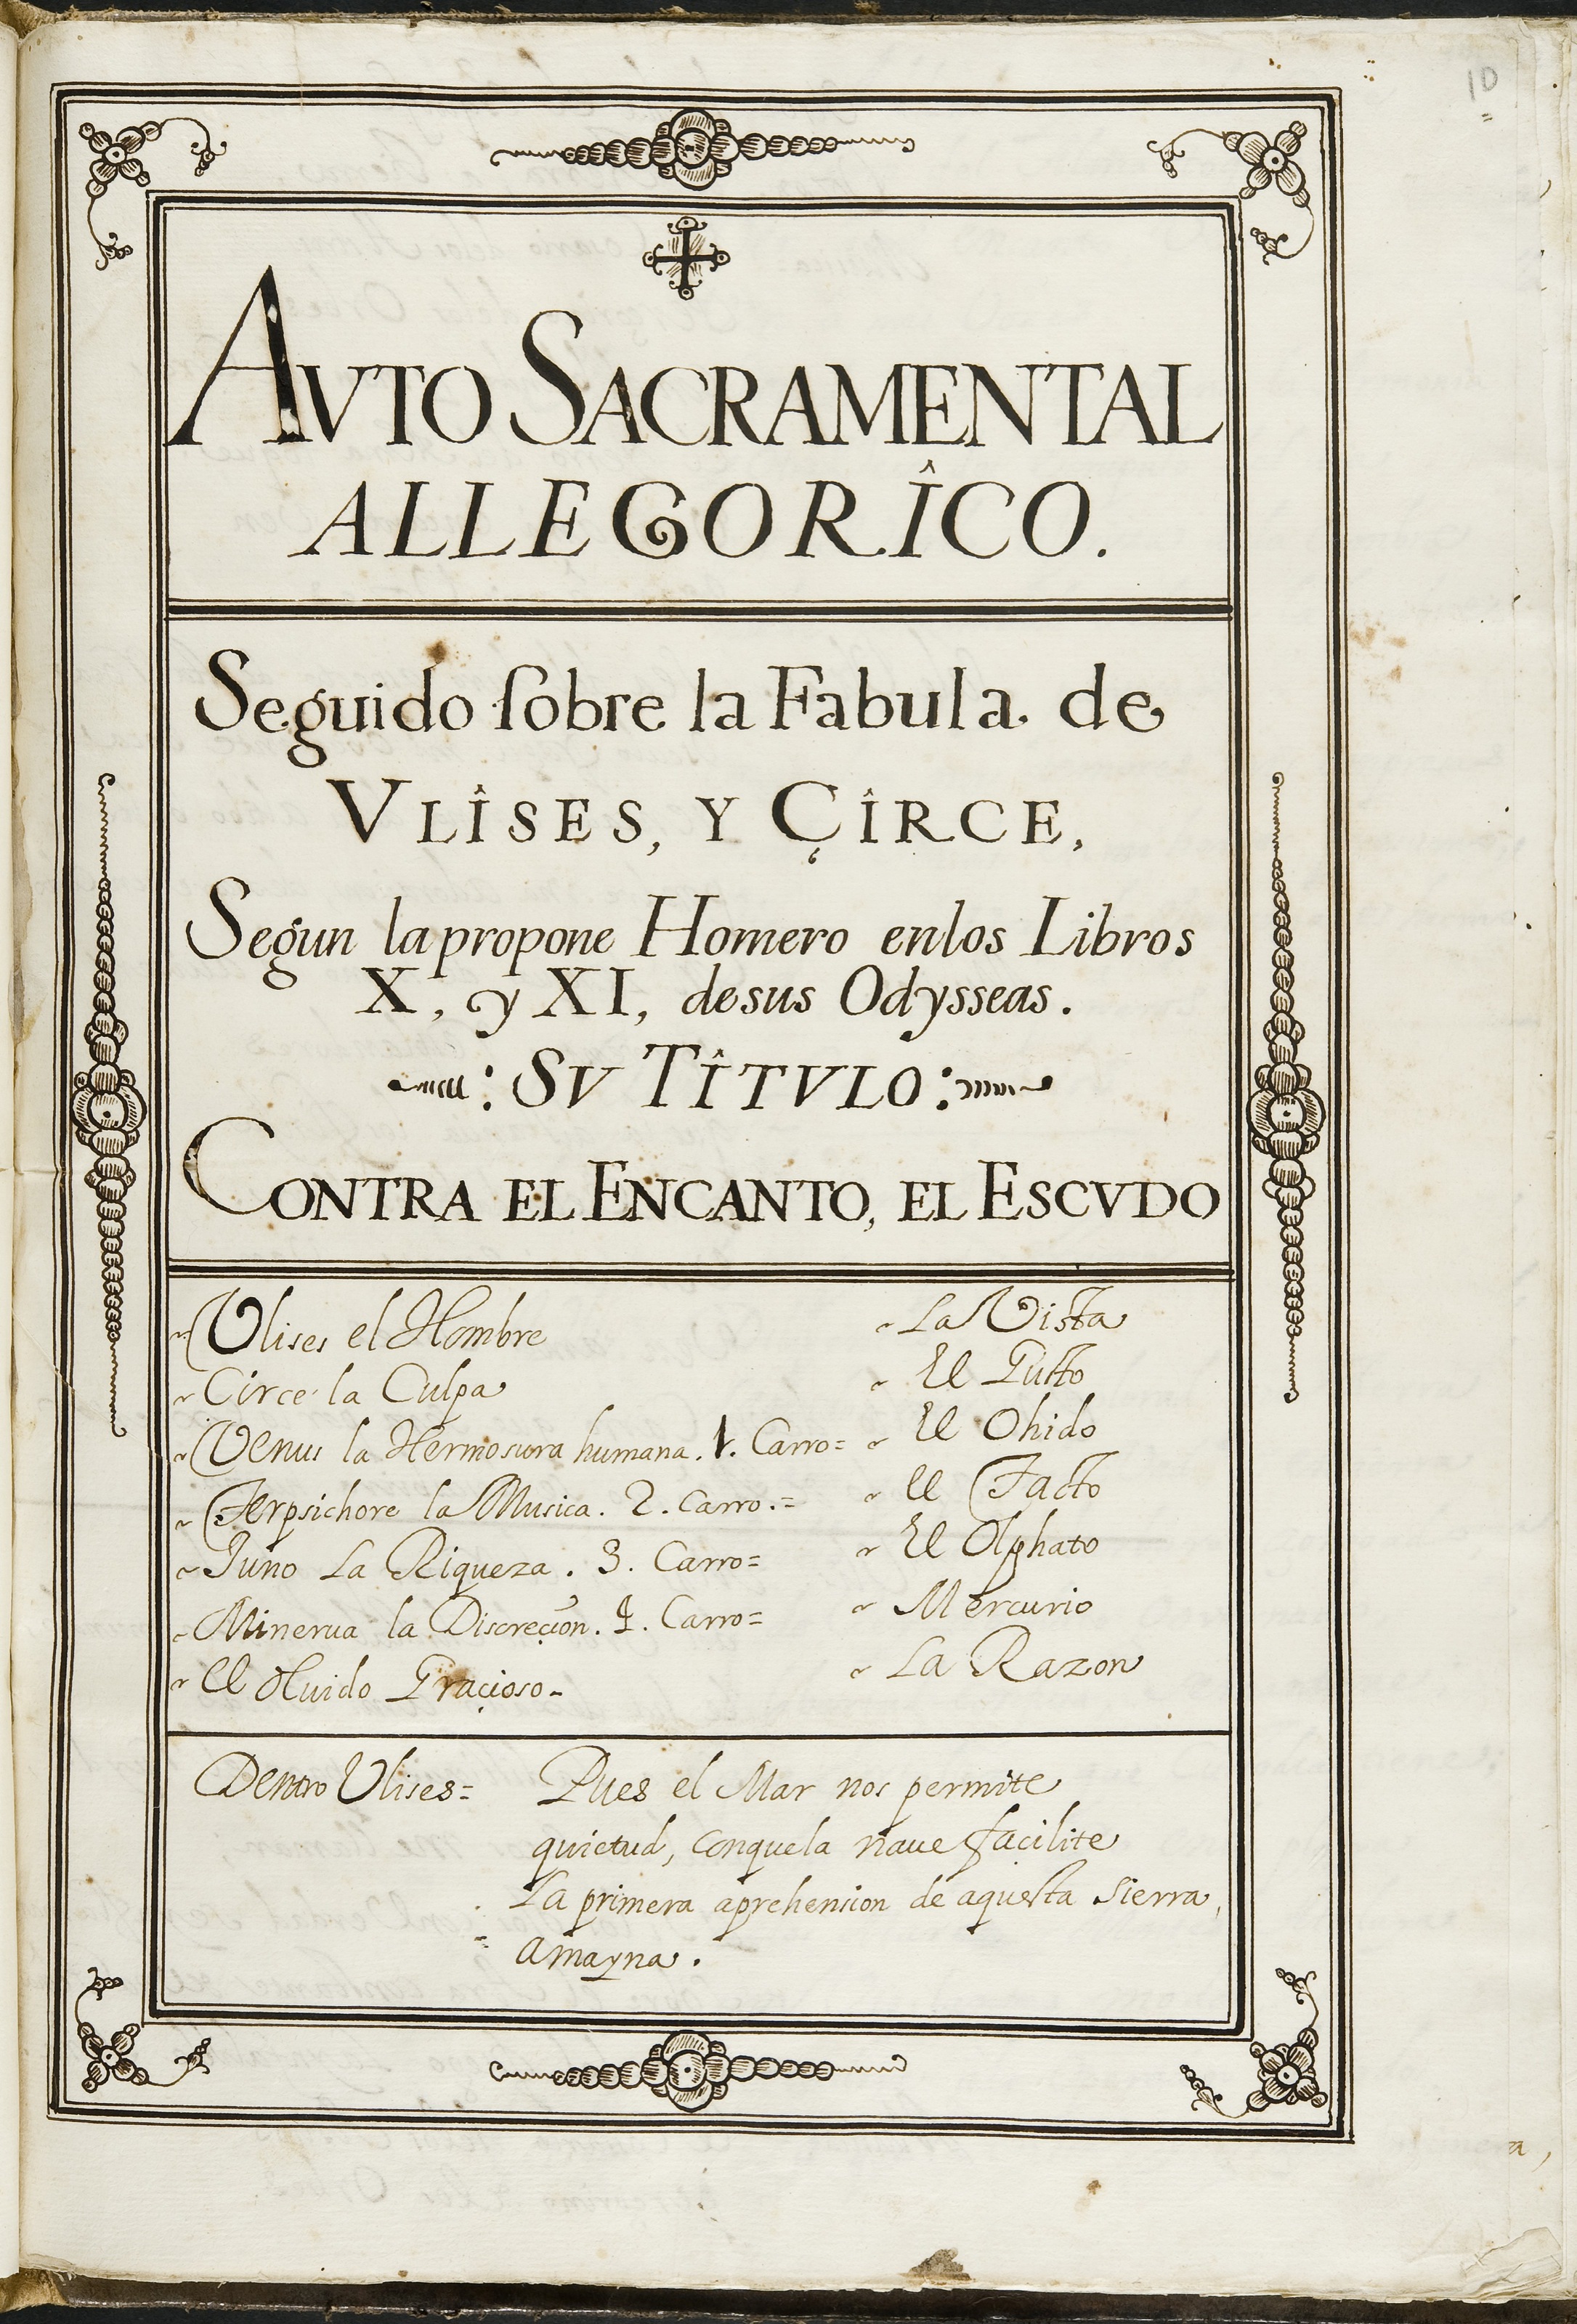 10
AVTO SACRAMENTAL
ALLEGORÎCO.
Seguido ſobre la Fabula de
VLÎSES, Y ÇÎRCE,
Segun la propone Homero enlos Libros
X, y XI, desus Odysseas.
: SV TÎTVLO :
CONTRA EL ENCANTO, EL ESCVDO
Ulises el Hombre
Circe la Culpa
Venus la Hermosura humana. 1. Carro=
Terpsichore la Musica. 2. Carro.=
Juno La Riqueza. 3. Carro=
Minerua la Discreçion. 4. Carro=
El Oluido Graçioso-
La Vista
El Gusto
El Ohido
El Tacto
El Olphato
Mercurio
La Razon
Dentro Ulises= Pues el Mar nos permite
quietud, conquela naue façilite
La primera aprehension de aquesta Sierra,
amayna.